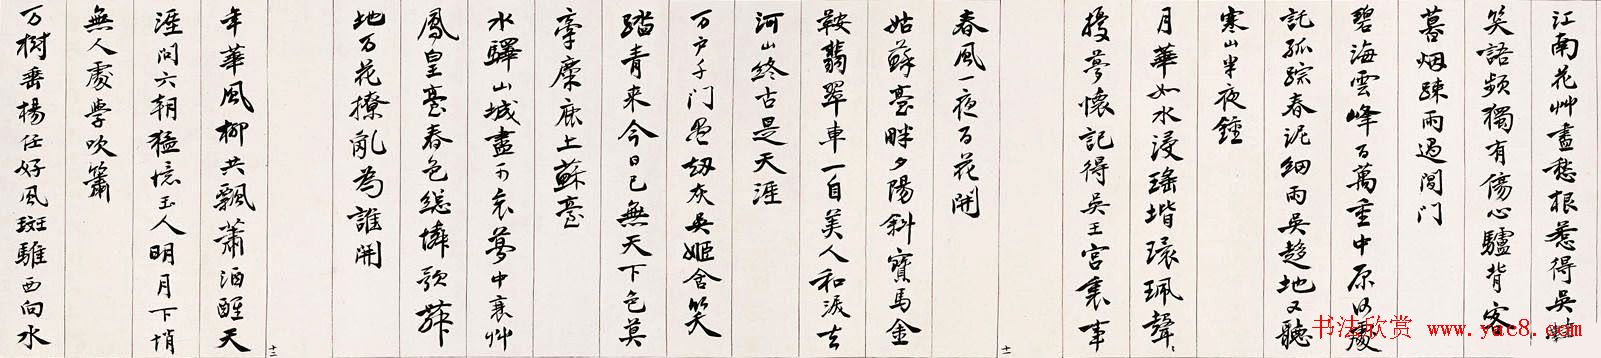 江南花艸盡愁根惹得吳娃
笑語頻獨有傷心驢背客
暮烟疎雨過閶門
碧海雲峰百萬重中原何處
託孤踪春泥細雨吳趨地又聽
寒山半夜鐘
月華如水浸瑤堦環珮聲〻
擾夢懷記得吳王宮裏事
十一
春風一夜百花開
姑蘇臺畔夕陽斜寶馬金
鞍翡翠車一自美人和淚去
河山終古是天涯
万戶千門盡劫灰吳姬含笑
踏青来今日已無天下色莫
牽麋鹿上蘇臺
水驛山城盡可哀夢中衰艸
鳳皇臺春色総憐歌舞
地万花撩亂為誰開
十二
年華風柳共飄蕭酒醒天
涯問六朝猛憶玉人明月下悄
無人處學吹簫
万樹垂楊任好風斑騅西向水
书法欣赏 www.yac8.com